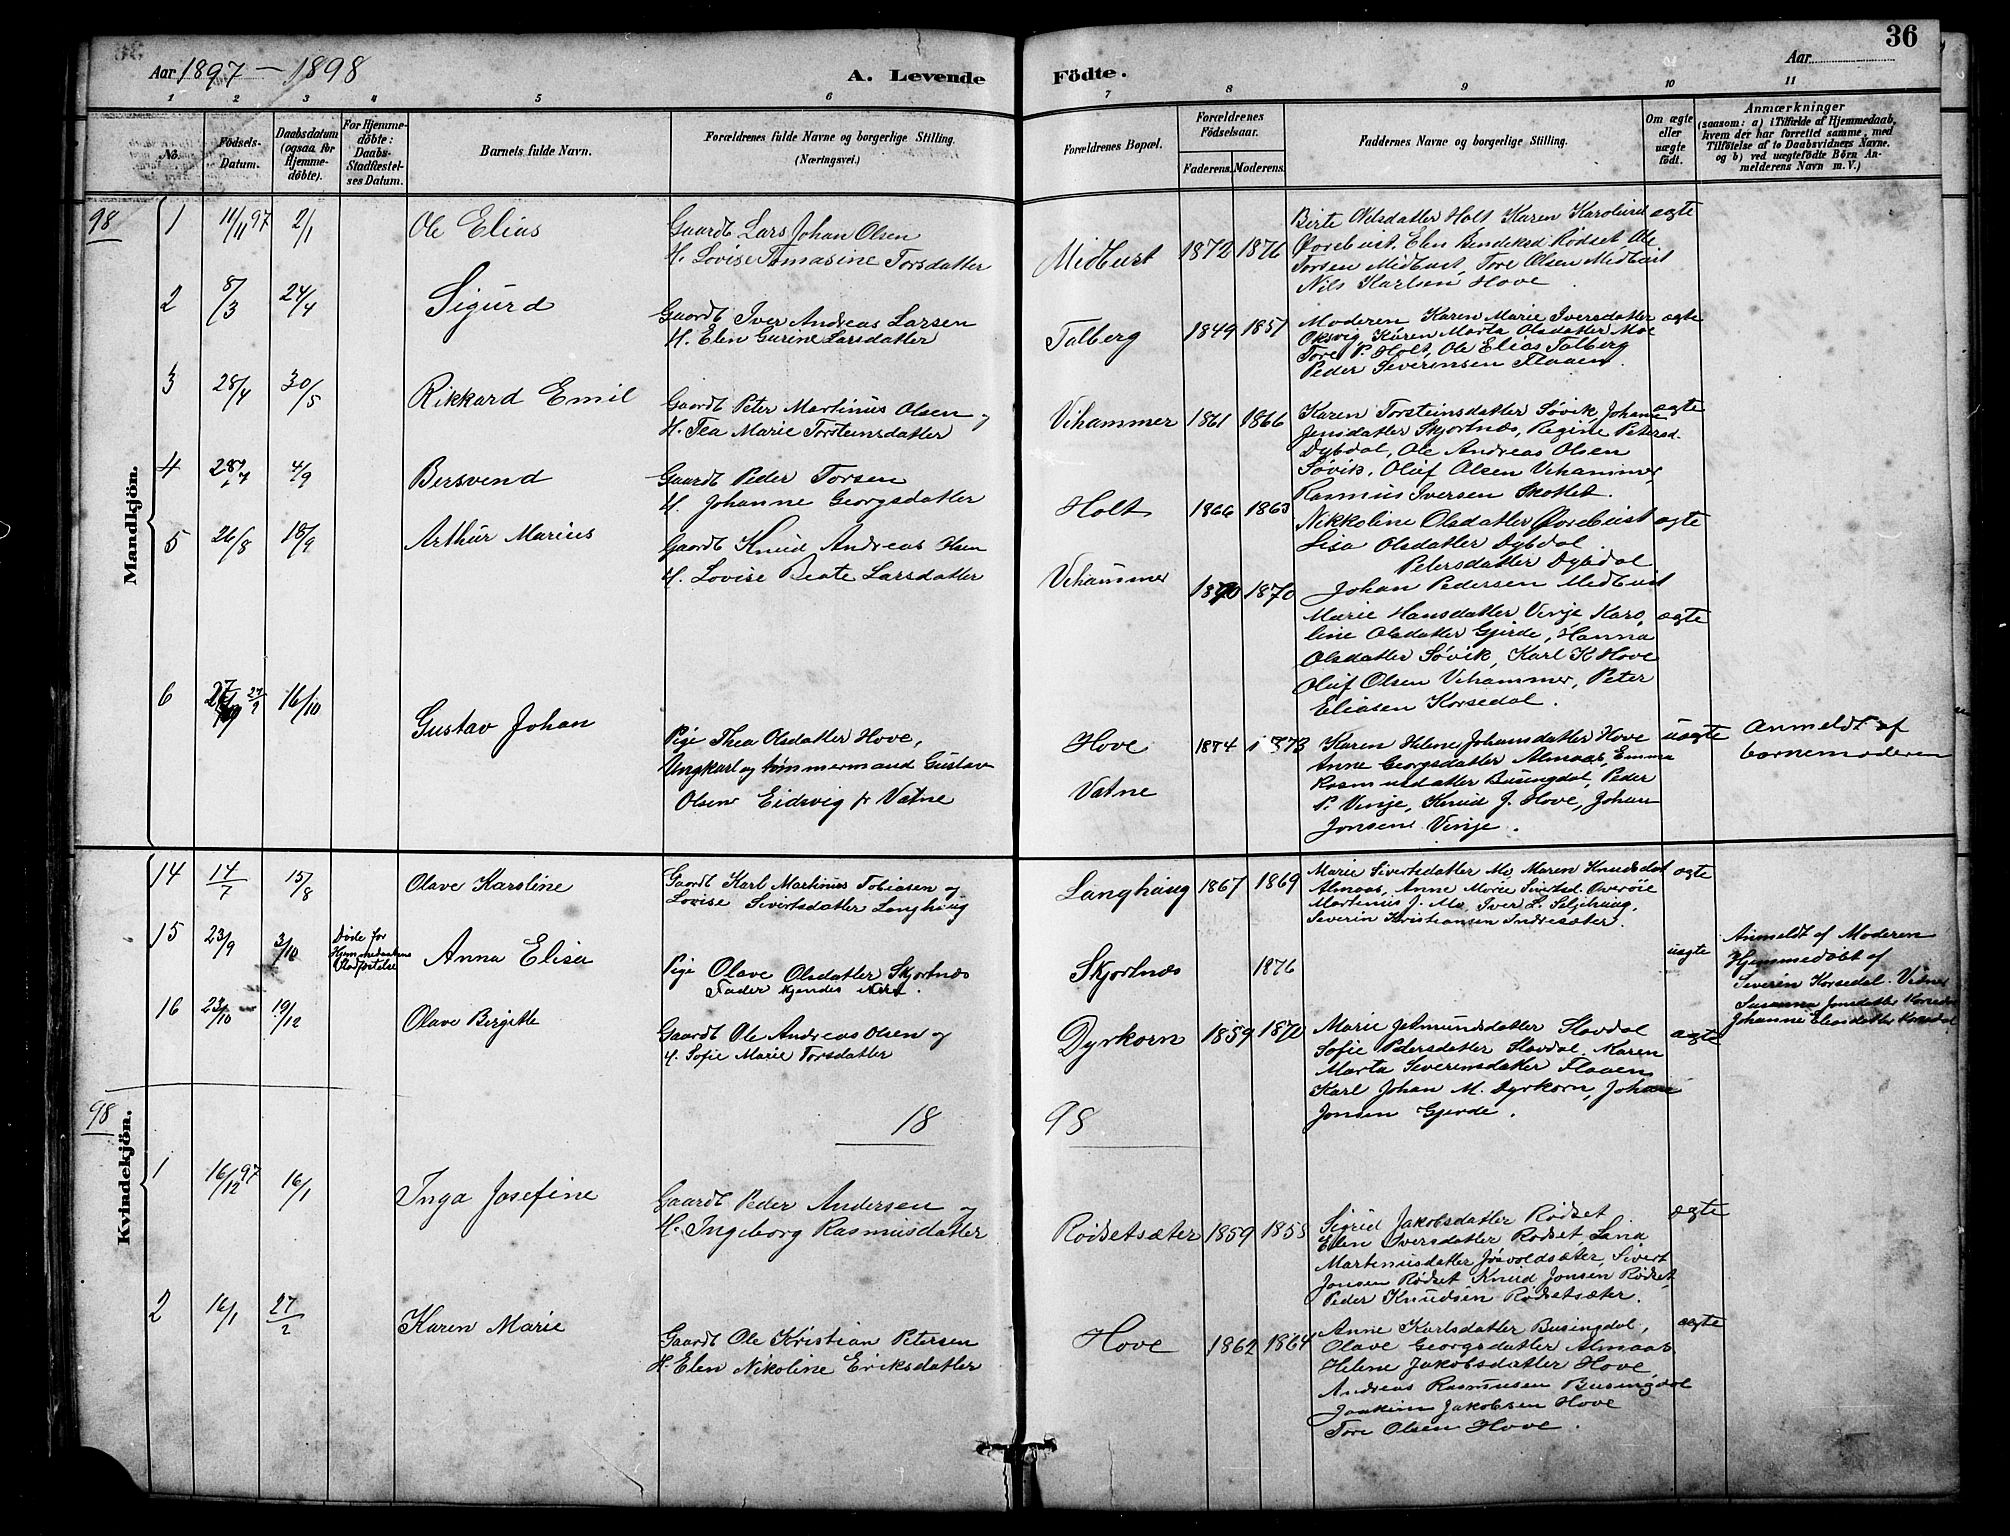 36
Aar 1897 - 1898
A. Levende Födte.
Aar
1 2 3 4 5 6 7 8 9 10 11
No.
Födsels-Datum.
Daabsdatum (ogsaa for Hjemme-döbte).
For Hjemme-döbte: Daabs-Stadfæstel-ses Datum.
Barnets fulde Navn.
Forældrenes fulde Navne og borgerlige Stilling.
(Næringsvei.)
Forældrenes Bopæl.
Forældrenes Födselsaar.
Faderens. Moderens.
Faddernes Navne og borgerlige Stilling.
Om ægte eller uægte födt.
Anmærkninger
(saasom: a) i Tilfælde af Hjemmedaab, hvem der har forrettet samme, med Tilföielse af to Daabsvidners Navne. og b) ved uægtefödte Börn Anmelderens Navn m. V.)
98
Mandkjön.
1 11/11 97 2/1 Ole Elias
Gaardt Lars Johan Olsen
H. Lovise Tomasine Torsdatter
Midtust 1872 1876
Birte Nilsdatter Holt Karen Karolusd ægte
Ovrebust, Elen Bendiksd Rødset, Ole
Torsen Midtust, Tore Olsen Midtust
Nils Karlsen Hove.
2 8/3 24/4 Sigurd
Gaardt Iver Andreas Larsen
H. Elen Gurine Larsdatter
Talberg 1849 1851
Moderen Karen Marie Iversdatter ægte
Oksvig, Karen Marta Olsdatter Moe
Tore P. Holt, Ole Elias Talberg
Peder Severensen Flaaen.
3 28/4 30/5 Rikkard Emil
Gaardt Peter Martinus Olsen og
H. Tea Marie Torsteinsdatter
Vihammer 1861 1866
Karen Torsteinsdatter Søvik, Johane ægte
Jensdatter Skjortnæs, Regine Petersd.
Dybdal, Ole Andreas Olsen
Søvik, Oluf Olsen Vihammer,
Rasmus Iversen Skotlet.
4 28/7 4/9 Bersvend
Gaardt Peder Torsen
H. Johanne Georgsdatter
Holt 1866 1863
Nikkoline Olsdatter Ovrebust ægte
Lisa Olsdatter Dybdal
Petersdatter Dybdal
Johan Pedersen Midtust
5 26/8 18/9 Arthur Marius
Gaardt Knud Andreas Olsen
H. Lovise Beate Larsdatter
Vihammer 1870 1870
Marie Hansdatter Vinje, Karo, ægte
line Olsdatter Gjerde, Hanna
Olsdatter Søvik, Karl K Hove
Oluf Olsen Vihammer, Peter
Eliasen Korsedal.
6 27/9 16/10 Gustav Johan
Pige Thea Olsdatter Hove,
Ungkarl og tømmermand Gustav
Olsen Eidsvig fr Vatne
Hove 1874 1873
Vatne
Karen Helene Johansdatter Hove uægte
Anne Georgsdatter Almaas, Emma
Rasmusdatter Busengdal, Peder
P. Vinje, Knud J. Hove, Johan
Jonsen Vinje.
Anmeldt af
barnemoderen
Kvindekjön.
14 14/7 15/8 Olave Karoline
Gaardt Karl Martinus Tobiasen og
Lovise Sivertsdatter Langhaug
Langhaug 1867 1869
Marie Sivertsdatter Mo, Maren Knudsdat ægte
Almaas, Anne Marie Sivertsd. Overøie
Martinus J. Mo, Iver L. Seljehaug,
Severin Kristiansen Indresæter.
15 23/9 3/10 Døde før Hjemmedaabens Stadfæstelse
Anna Elisa
Pige Olave Olsdatter Skjortnæs
Fader kjendes ikke.
Skjortnæs 1876 uægte
Anmeldt af Moderen
Hjemmedøbt af
Severin Korsedal. Vidner
Susanna Jonsdatter Korsedal
Johanne Eliasdatter Korsedal
16 23/10 19/12 Olave Birgitte
Gaardt Ole Andreas Olsen og
H. Sofie Marie Torsdatter
Dyrkorn 1859 1870
Marie Amundsdatter Slavdal ægte
Sofie Pedersdatter Slavdal. Karen
Marta Severinsdatter Flaaen
Karl Johan M. Dyrkorn, Johan
Jonsen Gjerde.
98
18 98
1 16/12 97 16/1 Inga Josefine
Gaardt Peder Andersen og
H. Ingeborg Rasmusdatter
Rødsetsæter 1859 1855
Sigrid Jakobsdatter Rødset. ægte
Elen Iversdatter Rødset, Lana
Martinusdatter Jøsvoldsæter, Sivert
Jonsen Rødset Knud Jonsen Rødset,
Peder Knudsen Rødsetsæter.
2 16/1 27/2 Karen Marie
Gaardt Ole Kristian Petersen
H. Elen Nikoline Eriksdatter
Hove 1862 1864
Anne Karlsdatter Busingdal, ægte
Olave Georgsdatter Almaas
Helene Jakobsdatter Hove
Andreas Rasmusen Busingdal
Joakim Jakobsen Hove
Tore Olsen Hove.